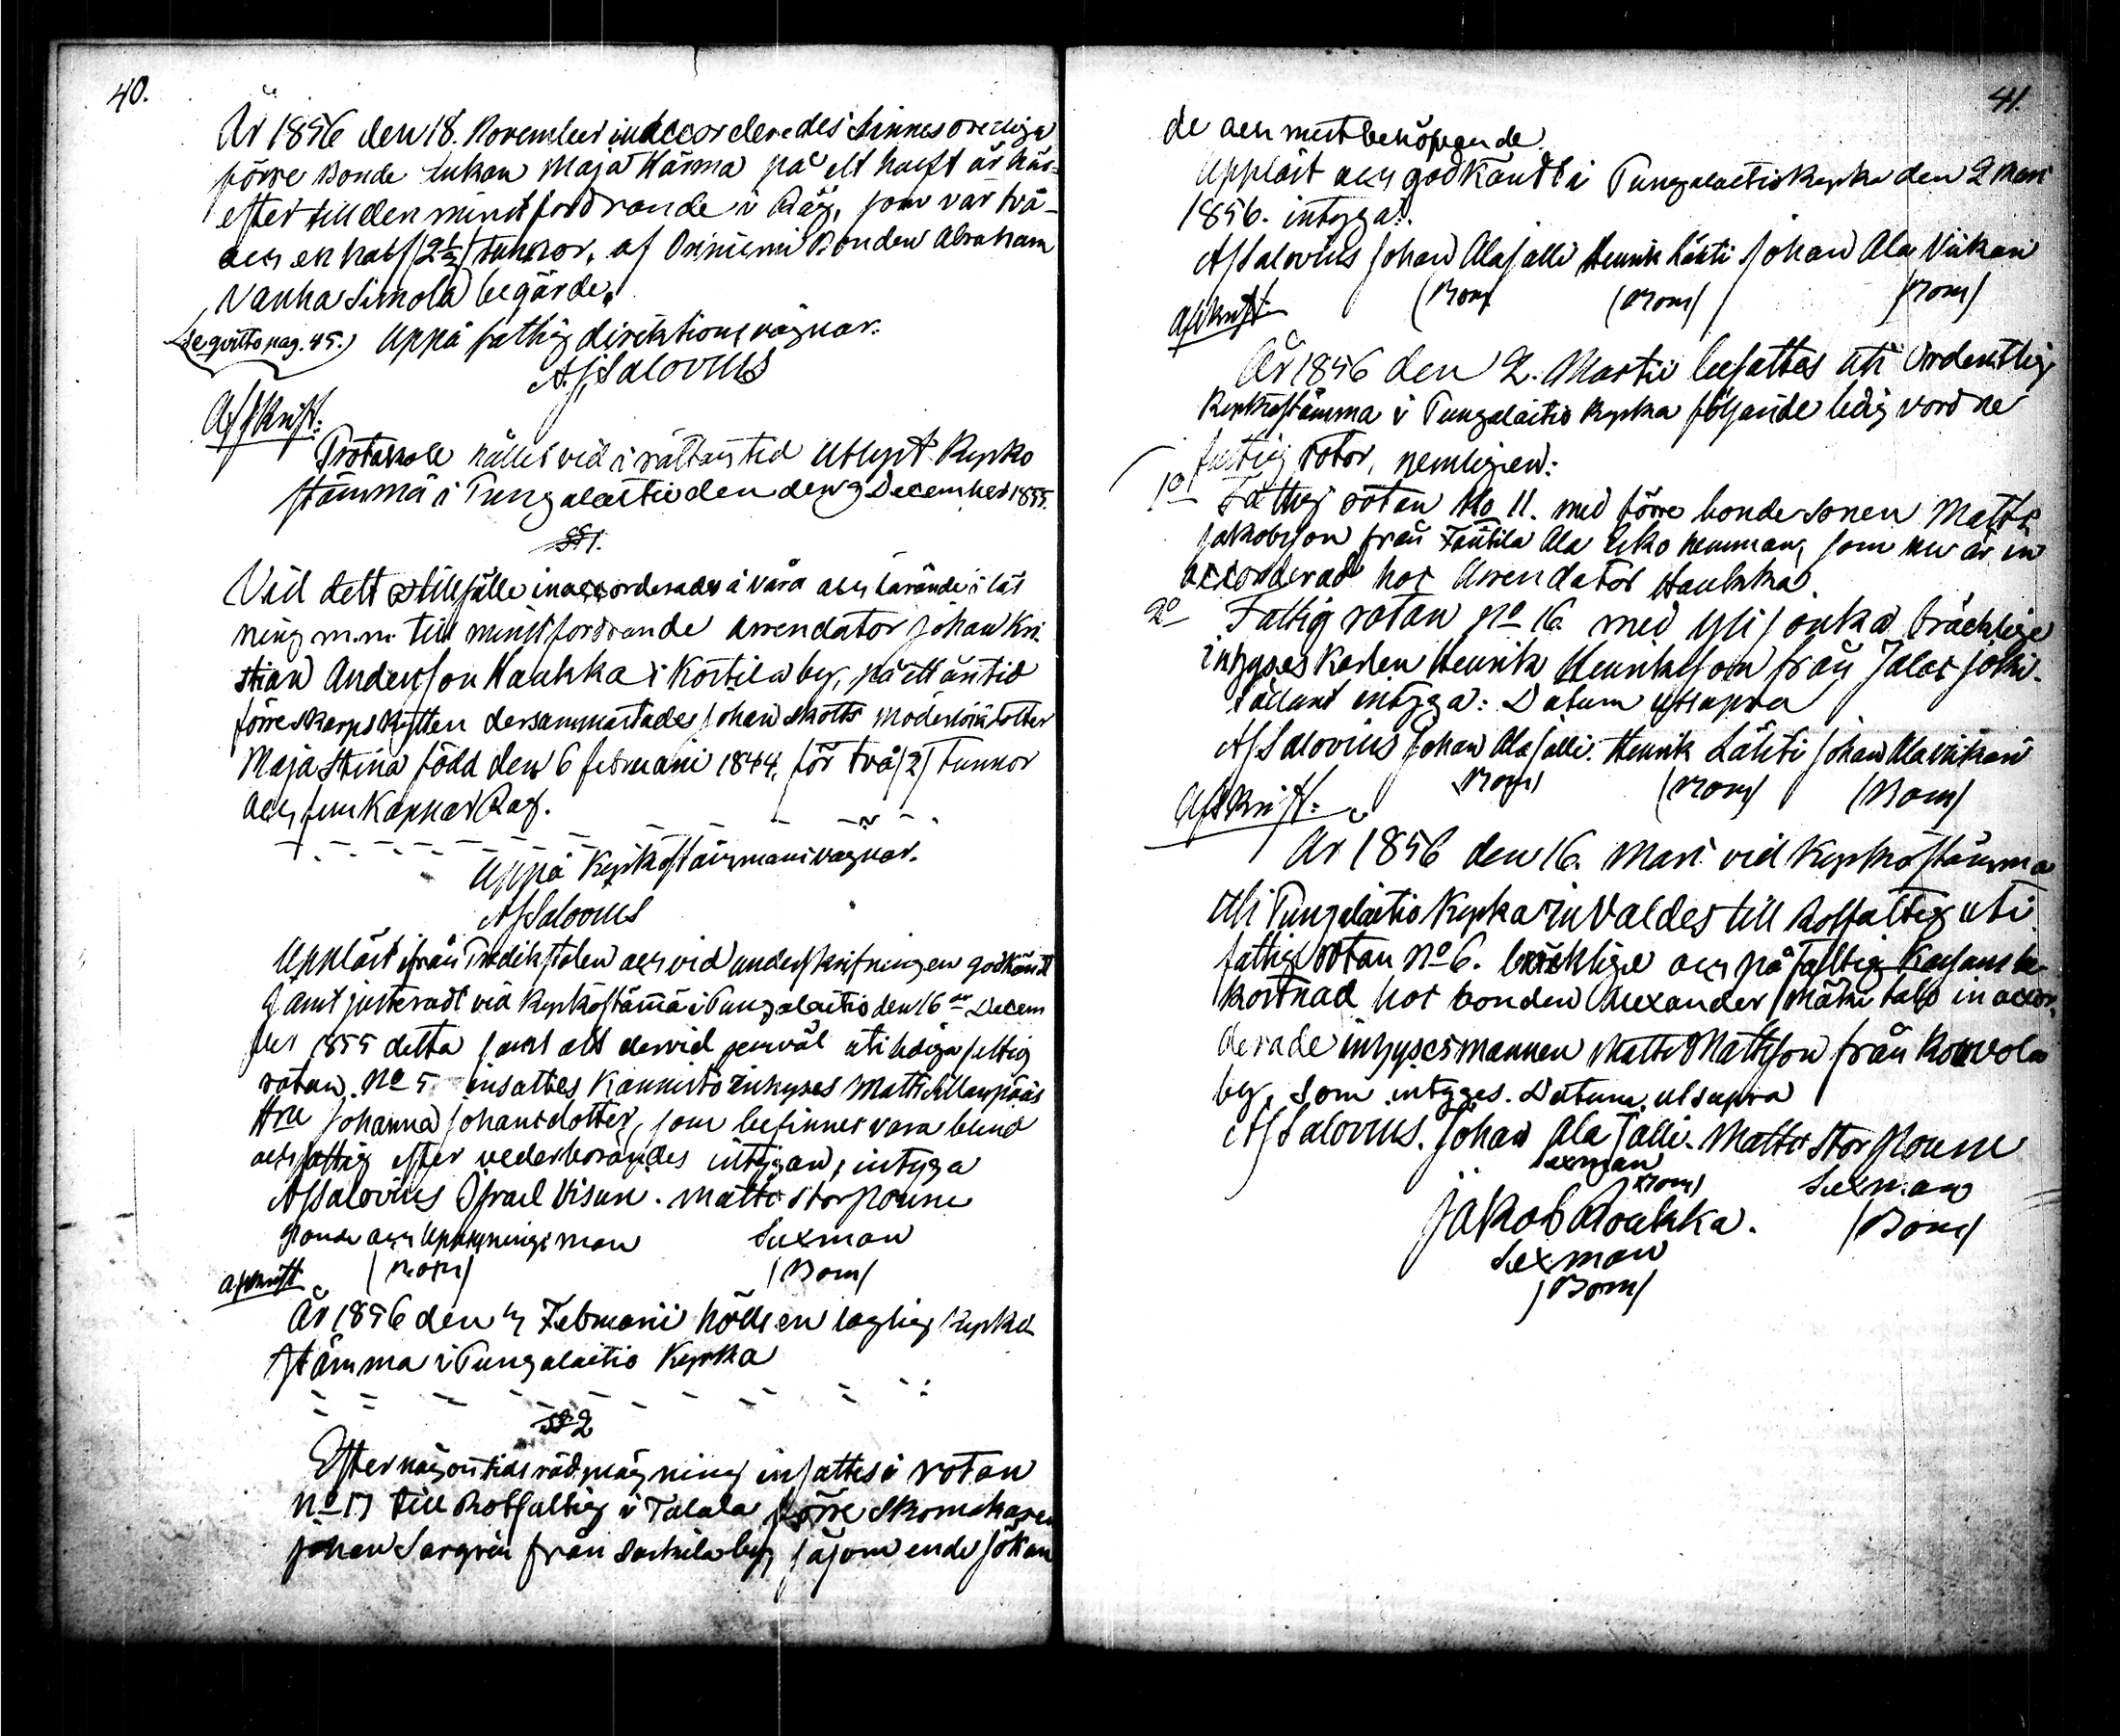 40.
År 1856 den 18. November inaccorderedes Sinnesoredige
förre Bonde Enkan Maja Härma på ett halft år här-
efter till den minstfordrande i Råg, som var två-
och en half /2½/ tunnor, af Bonden Abraham
Vanha Simola begärde.
(Se qvitto pag. 45.) Uppå fattig direktions vägnar.
AJSalovius
Afskrift:
Protokoll hållet vid i rättan tid utlyst Kyrko
stämma i Pungalaitio den 9 December 1855.
§ 1.
Vid detta tillfälle inaccorderades å vård och lärande i läs
ning m.m. till minstfordrande Arrendator Johan Kri
stian Andersson Haukka i Kortila by, på ett års tid
förre skarpskytten dersammastädes Johan Skotts moderlösa dotter
Maja Stina född den 6 Februarii 1844, för två /2/ Tunnor
och fem Kappar Råg.
Uppå Kyrkostämmans vägnar.
AJSalovius
Uppläst ifrån Predikstolen och vid underskrifningen godkändt
samt justeradt vid Kyrkostämma i Pungalaitio den 16de Decem
ber 1855 detta samt att dervid jemväl uti lediga fattig
rotan No 5 insattes Kannisto Inhyses Matts
Hru Johanna Johansdotter, som befinnes vara blind
och fattig efter vederbörandes intygan, intyga
AJSalovius Israel Visuri. Matts Storponni
Bonde och Uppsyningsman Sexman
(Bom) (Bom)
afskrift
År 1856 den 17 Februarii hölls en laglig Kyrko
stämma i Pungalaitio Kyrka
§ 2
Efter någon tids rådplägning insattes i rotan
No 17 till Rotfattig i Talala förre Skomakaren
Johan Sargren från Sarkila by, såsom ende sökan
41.
de och mest behöfvande.
Uppläst och godkändt i Pungalaitio Kyrka den 2 Mars
1856. intyga:
AJSalovius Johan Alajalli Henrik Lähti Johan Ala Viikari
(Bom) (Bom) (Bom)
Afskrift
År 1856 den 2. Martii besattes uti Ordentlig
Kyrkostämma i Pungalaitio Kyrka följande ledig vordne
fattig rotor, nemligen:
1o Fattig rotan No 11. med förre bonde sonen Matts
Jakobsson från Fäntilä Ala Esko hemman, som nu är in
accorderad hos Arrendator Haukka.
2o Fattig rotan No 16. med Ylisonka bräcklige
inhyses Karlen Henrik Henriksson från Jalasjoki.
sådant intyga: Datum utsupra
AJSalovius Johan Alajalli. Henrik Lähti Johan Alaviikari
(Bom) (Bom) (Bom)
Afskrift:
År 1856 den 16. Mars vid Kyrkostämma
uti Pungalaitio Kyrka invaldes till Rotfattig uti
fattig rotan No 6. bräcklige och på Fattig Kassans be
kostnad hos bonden Alexander Mäkitalo inaccor-
derade inhysesmannen Matts Mattsson från Koivola
by, som intyges. Datum utsupra
AJSalovius. Johan Ala Jalli. Matts Storponni
Sexman (Bom) Sexman
Jakob Roukka. (Bom)
Sexman
(Bom)